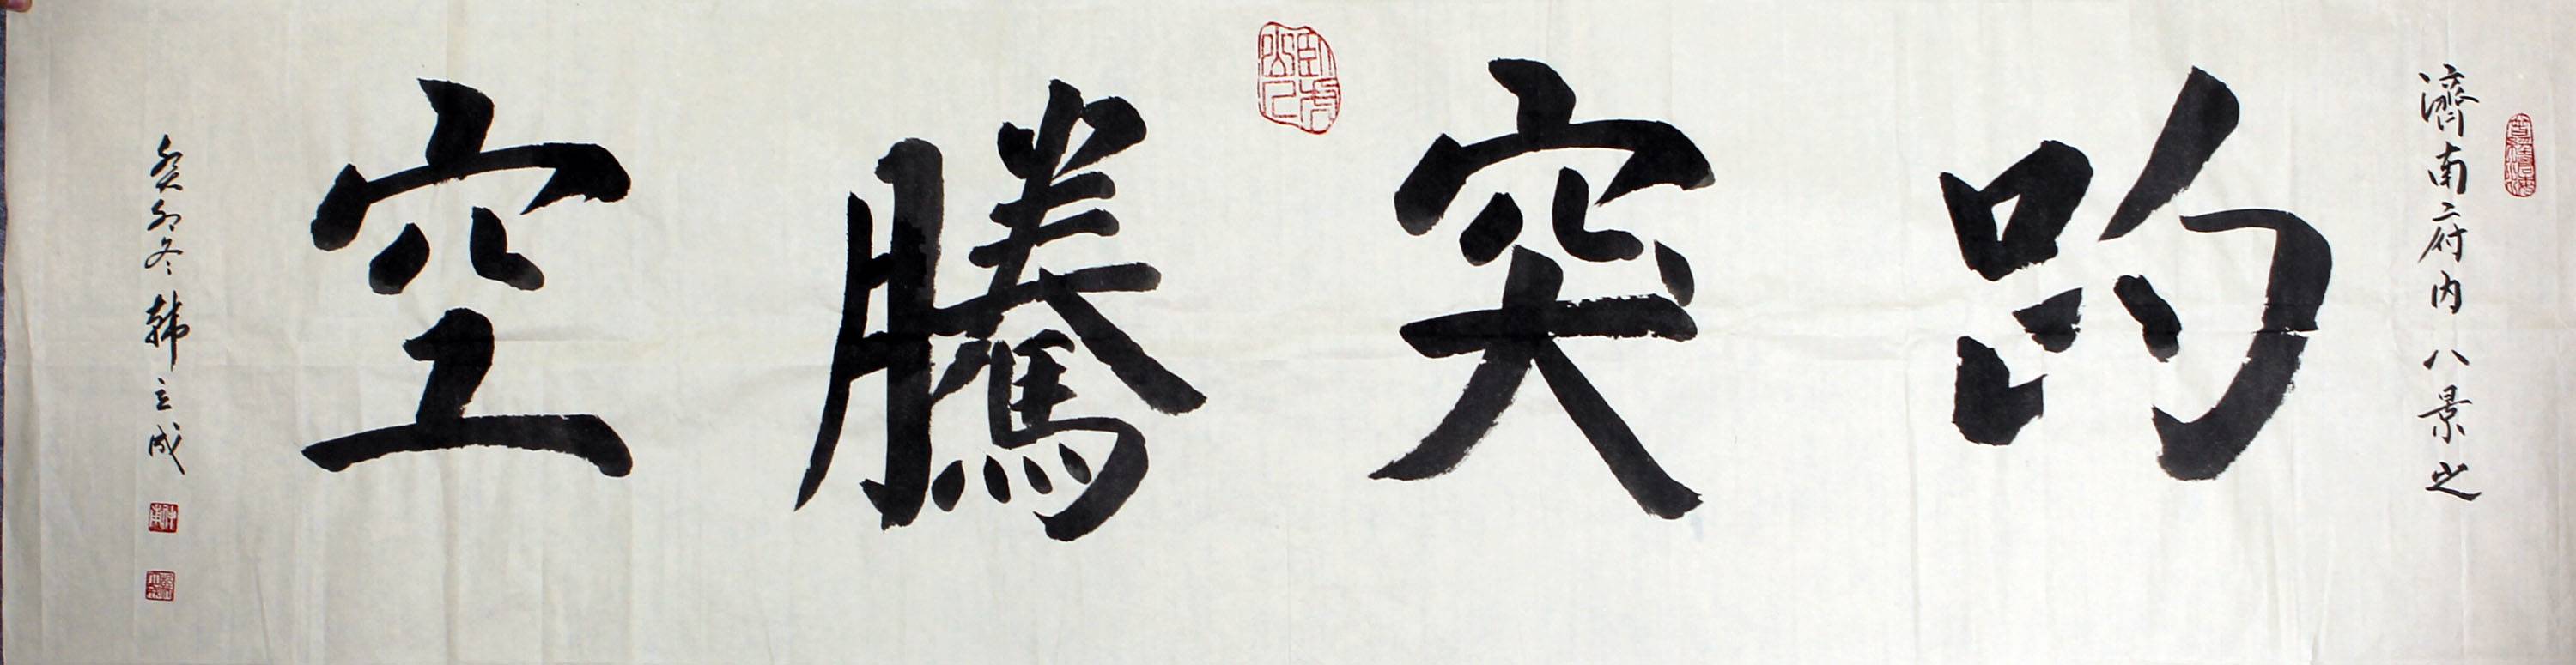 濟南府内八景之
趵突騰空
癸卯冬 韩立成